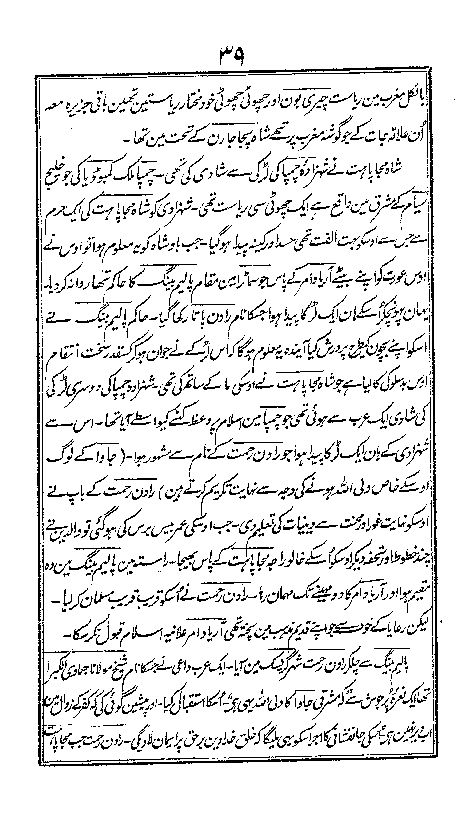 ۳۹
بالکل مغرب مین ریاست چیری بون اور چھوٹی چھوٹی خود مختار ریاستین تھین باقی جزیرہ معہ
اُن علاقہ جات کے جو گوشہ مغرب پر تھے شاہ پجاجارن کے تحت مین تھا ۔
شاہ مجاپاہت نے شہزادہ چمپا کی لڑکی سے شادی کی تھی ۔ چمپا ملک کمبوڈیا کی جو خلیج
سیام کے شرق مین واقع ہے ایک چھوٹی سی ریاست تھی ۔ شہزادی کو شاہ مجاپاہت کی ایک حرم
سے جس سے اوسکو بہت الفت تھی حسد اور کینہ پیدا ہو گیا ۔ جب بادشاہ کو یہ معلوم ہوا تو اوس نے
اوس عورت کو اپنے بیٹے آریا دامر کے پاس جو سماٹرا مین مقام پالیم بینگ کا حاکم تھا روانہ کر دیا ۔
یہان پہونچکر اسکے ہان ایک لڑکا پیدا ہوا جسکا نام رادن پاتا رکھا گیا ۔ حاکم پالیم بینگ نے
اسکو اپنے بچون کیطرح پرورش کیا آیندہ یہ معلوم ہوگا کہ اس لڑکے نے جوان ہو کر کسقدر سخت انتقام
اوس بدسلوکی کا لیا ہے جو شاہ مجاپاہت نے اوسکی ما کے ساتھ کی تھی شہزادہ چمپا کی دوسری لڑکی
کی شادی ایک عرب سے ہوئی تھی جو چمپا مین اسلام پر وعظ کہنے کیواسطے آیا تھا ۔ اس سے
شہزادی کے ہان ایک لڑکا پیدا ہوا جو رادن رحمت کے نام سے مشہور ہوا ۔ (جاوا کے لوگ
اوسکے خاص ولی اللہ ہونے کی وجہ سے نہایت تکریم کرتے ہین) رادن رحمت کے باپ نے
اوسکو نہایت غور اور محنت سے دینیات کی تعلیم دی ۔ جب اوسکی عمر بیس برس کی ہو گئی تو والدین نے
چند خطوط اور تحفہ دیکر اوسکو اُسکے خالو راجہ مجاپاہت کے پاس بھیجا ۔ راستہ مین پالیم بینگ مین وہ
مقیم ہوا اور آریا دامر کا دو مہینے تک مہمان رہا ۔ رادن رحمت نے اُسکو قریب قریب مسلمان کر لیا ۔
لیکن رعایا کے خوف سے جو اپنے قدیم مذہب مین پختہ تھی آریا دامر علانیہ اسلام قبول نکر سکا ۔
پالیم بینگ سے چلکر رادن رحمت شہر گریسک مین آیا ۔ ایک عرب داعی نے جسکا نام شیخ مولانا جمادی الکبرا
تھا ایک نعرہ پر جوش سے کہ مشرقی جاوا کا ولی اللہ یہی ہے اُسکا استقبال کیا ۔ اور پیشین گوئی کی کہ کفر کے زوال مین
اب دیر نہین ہے اُسکی جانفشانی کا اجر اسکو یہی ملیگا کہ خلق خدا دین برحق پر ایمان لاویگی ۔ رادن رحمت جب مجاپاہت